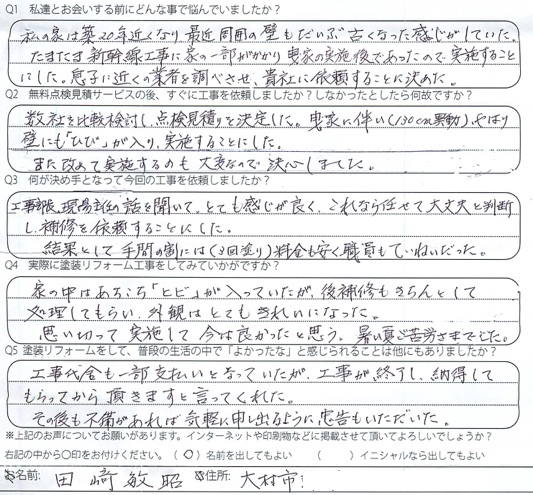 Q1　私達とお会いする前にどんな事で悩んでいましたか？
私の家は築20年近くなり最近周囲の壁もだいぶ古くなった感じがしていた。
たまたま新幹線工事に家の一部がかかり曳家の実施後であったので実施すること
にした。息子に近くの業者を調べさせ、貴社に依頼することに決めた。
Q2　無料点検見積サービスの後、すぐに工事を依頼しましたか？しなかったとしたら何故ですか？
数社を比較検討し、点検見積りを決定した。曳家に伴い(130cm異動)、やはり
壁にも「ひび」が入り、実施することにした。
また改めて実施するのも大変なので決心しました。
Q3　何が決め手となって今回の工事を依頼しましたか？
工事部長、現場主任の話を聞いて、とても感じが良く、これなら任せて大丈夫と判断
し、補修を依頼することにした。
結果として手間の割には(3回塗り)料金も安く、職員もていねいだった。
Q4　実際に塗装リフォーム工事をしてみていかがですか？
家の中はあちこち「ヒビ」が入っていたが、後補修もきちんとして
処理してもらい、外観はとてもきれいになった。
思い切って実施して今は良かったと思う。暑い夏ご苦労さまでした。
Q5　塗装リフォームをして、普段の生活の中で「よかったな」と感じられることは他にもありましたか？
工事代金も一部支払いとなっていたが、工事が終了し、納得して
もらってから頂きますと言ってくれた。
その後も不備があれば気軽に申し出るように忠告もいただいた。
※上記のお声についてお願いがあります。インターネットや印刷物などに掲載させて頂いてよろしいでしょうか？
右記の中から〇印をお付けください。（〇）名前を出してもよい　（　）イニシャルなら出してもよい
お名前：田﨑敏昭　ご住所：大村市